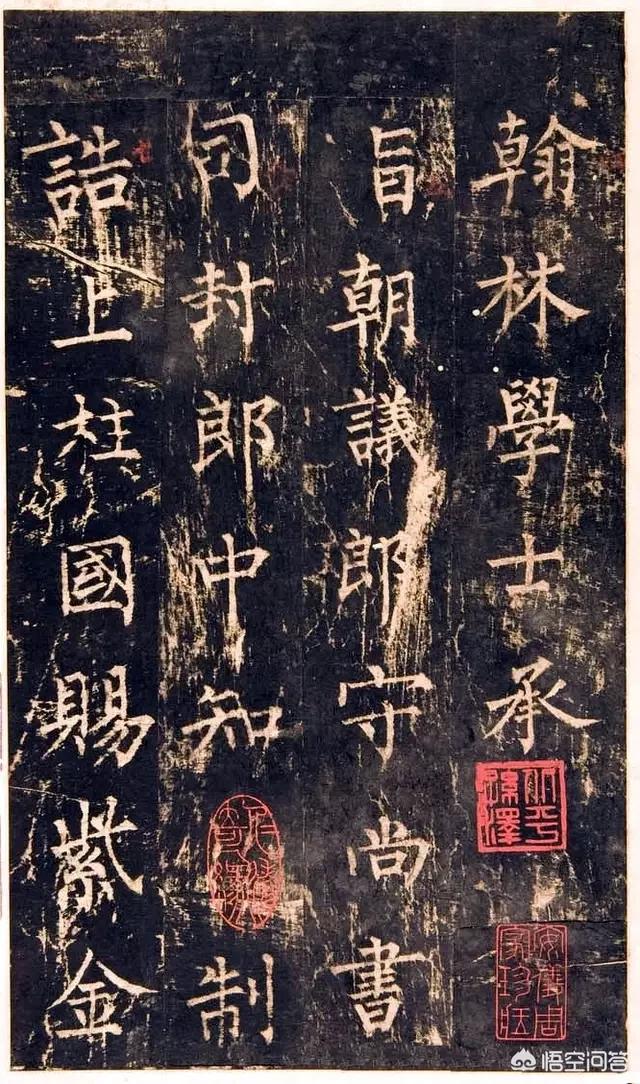 翰林學士承
旨朝議郎守尚書
司封郎中知制
誥上柱國賜紫金
悟空问答